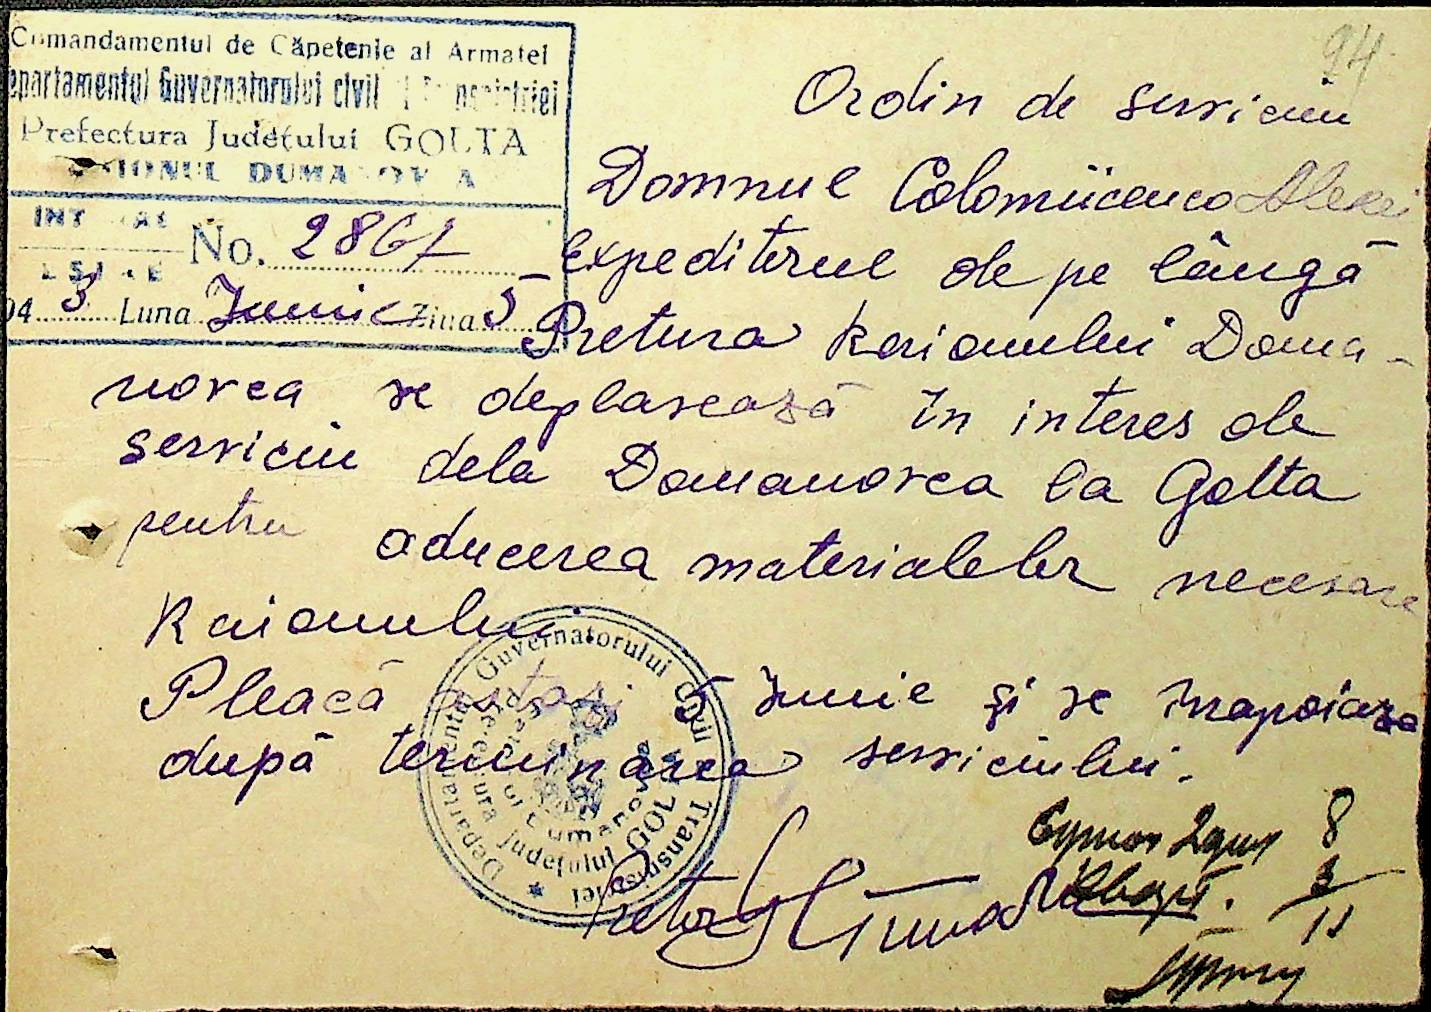 94
Comandamentul de Căpetenie al Armatei
epartamentul Guvernatorului civil al Transnistriei
Prefectura Județului GOLTA
RAIONUL DUMANOVCA
INT AE
No. 2867
EȘIRE
94 3 Luna Junie Ziua 5
Ordin de serviciu
Domnul Colomiicenco Alexei
Expeditorul de pe lângă
Pretura Raionului Doma-
novca se deplasează în interes de
serviciu dela Domanovca la Golta
pentru aducerea materialelor necesare
Raionului
Pleacă astazi 5 Junie și se înapoiaza
după terminarea serviciului.
Departamentul Guvernatorului Civil Transnistriei
Prefectura Județului GOLTA
Pretor
8
3
11